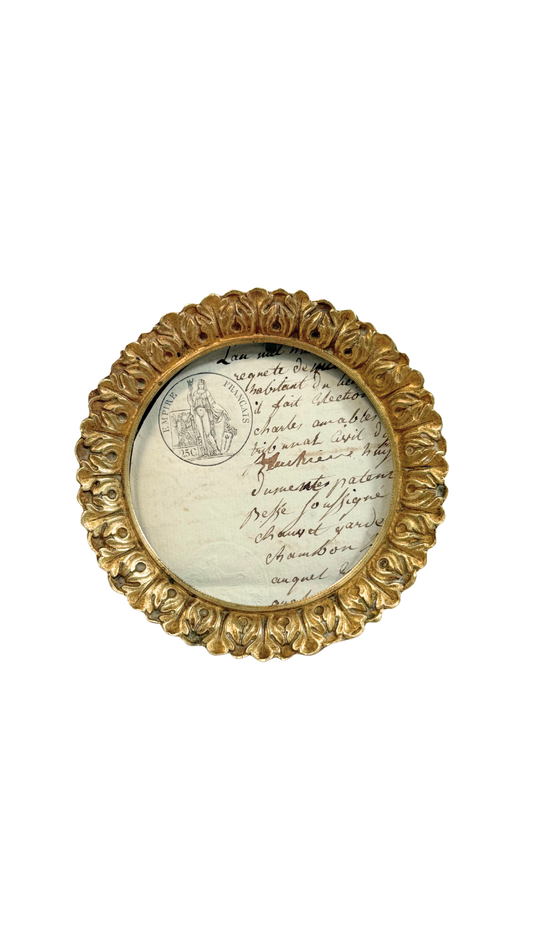 EMPIRE FRANÇAIS
25C
Lan mil
requete de
habitant du
il fait Election
charles amable
tribunal Civil d
dument patent
Besse Soussigné
chauvet garde
chambon
auquel